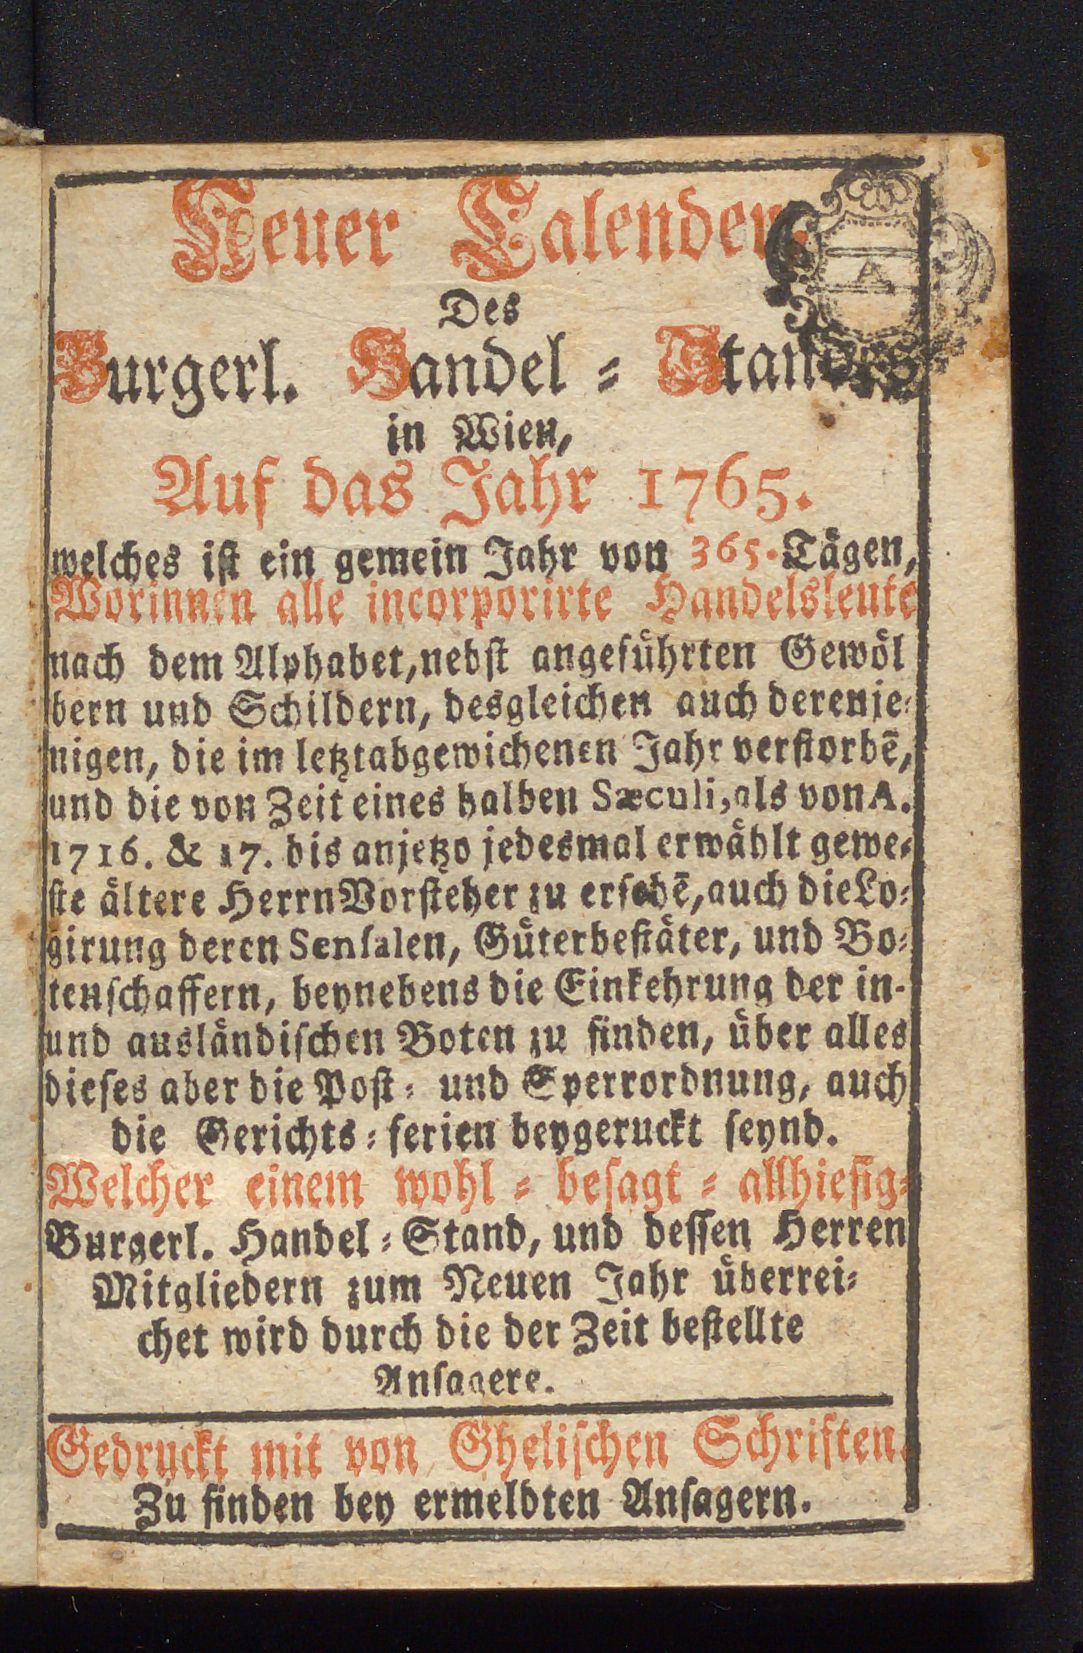 Neuer Calender,
Des
Burgerl. Handel = Stands
in Wien,
Auf das Jahr 1765.
welches ist ein gemein Jahr von 365. Tägen,
Worinnen alle incorporirte Handelsleute
nach dem Alphabet, nebst angeführten Gewöl
bern und Schildern, desgleichen auch derenje=
nigen, die im letztabgewichenen Jahr verstorbē,
und die von Zeit eines halben Sæculi, als von A.
1716. & 17. bis anjetzo jedesmal erwählt gewe=
ste ältere Herrn Vorsteher zu ersehē, auch die Lo=
girung deren Sensalen, Güterbestäter, und Bo=
tenschaffern, beynebens die Einkehrung der in-
und ausländischen Boten zu finden, über alles
dieses aber die Post= und Sperrordnung, auch
die Gerichts=ferien beygeruckt seynd.
Welcher einem wohl = besagt = allhiesig=
Burgerl. Handel=Stand, und dessen Herren
Mitgliedern zum Neuen Jahr überrei=
chet wird durch die der Zeit bestellte
Ansagere.
Gedruckt mit von Ghelischen Schriften.
Zu finden bey ermeldten Ansagern.
A